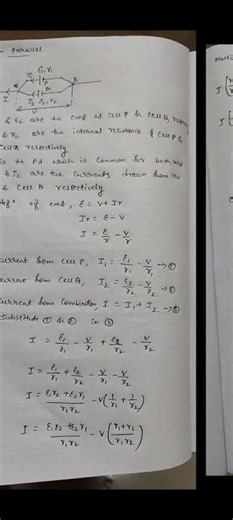 Parallel
ε₁, r₁
I₁
P
A
B
I
I₂ ε₂, r₂
V
& ε₂ are the emf of cell P & cell Q respec
& r₂ are the internal resistance of cell P &
cell Q respectively
is the Pd which is common for both cells
& I₂ are the currents drawn from cell
& cell Q respectively
of emf, ε = V + Ir
Ir = ε - V
I = ε/r - V/r
current from cell P, I₁ = ε₁/r₁ - V/r₁ → ①
current from cell Q, I₂ = ε₂/r₂ - V/r₂ → ②
current from combination, I = I₁ + I₂ → ③
Substitute ① & ② in ③
I = ε₁/r₁ - V/r₁ + ε₂/r₂ - V/r₂
I = ε₁/r₁ + ε₂/r₂ - V/r₁ - V/r₂
I = ε₁r₂ + ε₂r₁/r₁r₂ - V(1/r₁ + 1/r₂)
I = ε₁r₂ + ε₂r₁/r₁r₂ - V(r₁+r₂/r₁r₂)